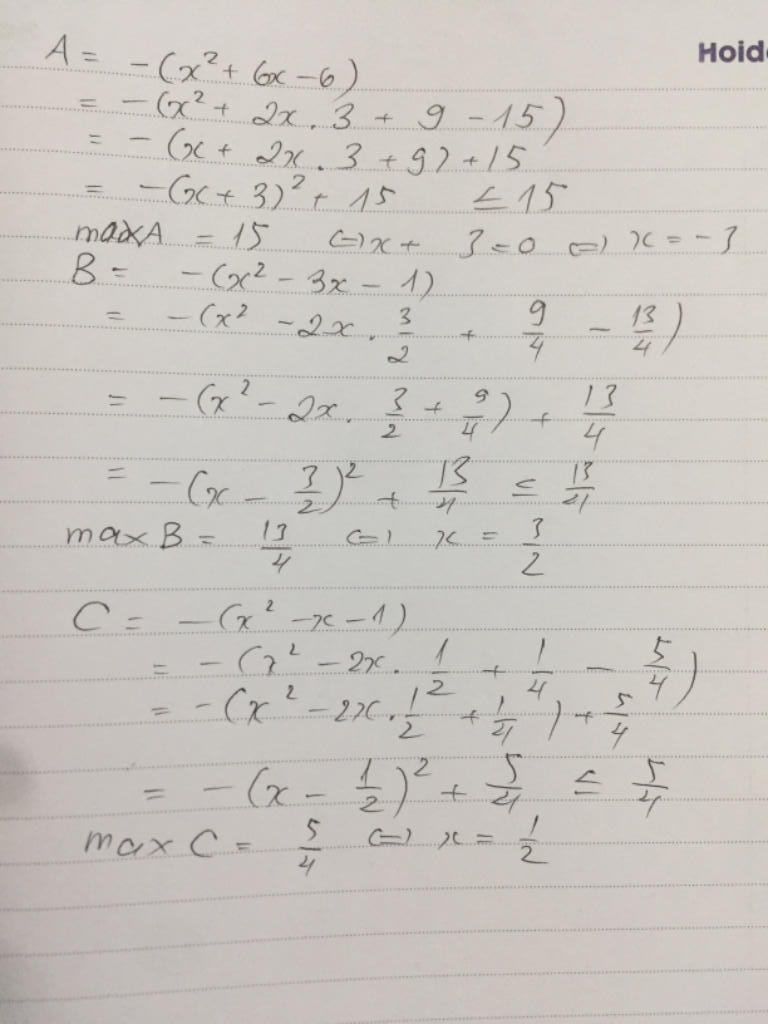 Hoid
A = -(x² + 6x - 6)
= -(x² + 2x . 3 + 9 - 15)
= -(x + 2x . 3 + 9) + 15
= -(x + 3)² + 15 ≤ 15
maxA = 15 <=> x + 3 = 0 <=> x = -3
B = -(x² - 3x - 1)
= -(x² - 2x . 3/2 + 9/4 - 13/4)
= -(x² - 2x . 3/2 + 9/4) + 13/4
= -(x - 3/2)² + 13/4 ≤ 13/4
max B = 13/4 <=> x = 3/2
C = -(x² - x - 1)
= -(x² - 2x . 1/2 + 1/4 - 5/4)
= -(x² - 2x . 1/2 + 1/4) + 5/4
= -(x - 1/2)² + 5/4 ≤ 5/4
max C = 5/4 <=> x = 1/2